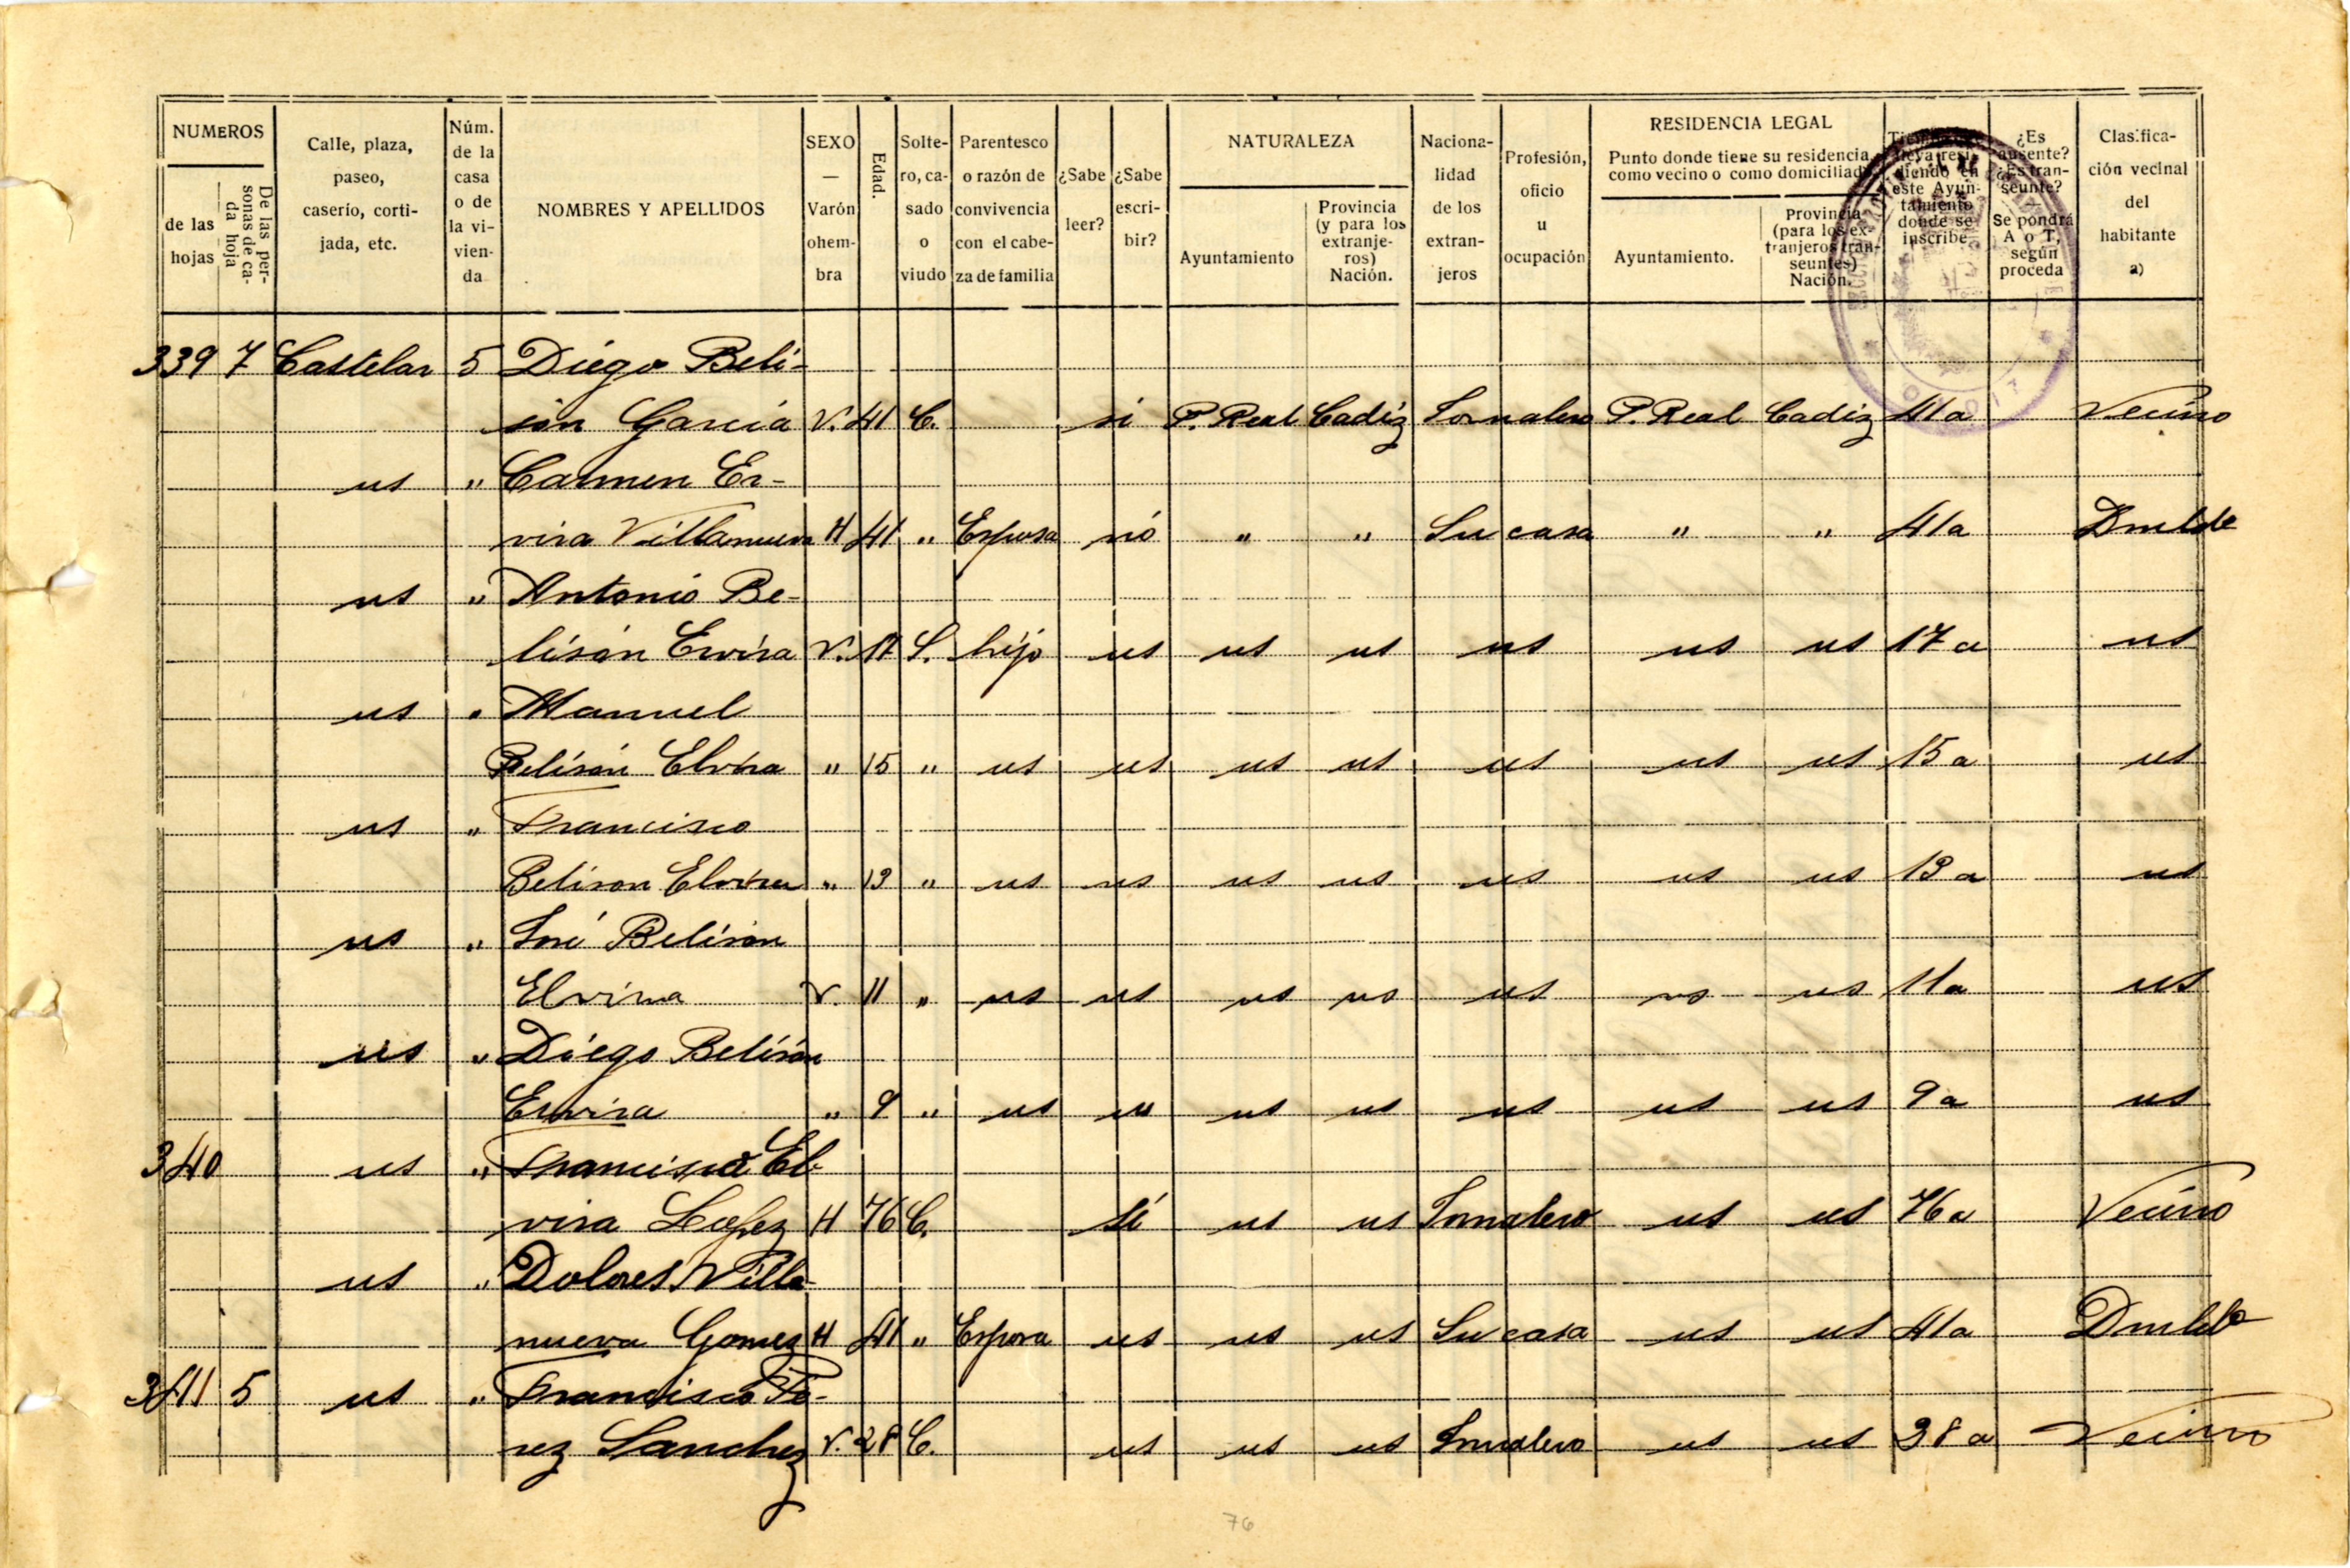 NUMEROS
de las hojas
De las personas de cada hoja
Calle, plaza, paseo, caserío, cortijada, etc.
Núm. de la casa o de la vivienda
NOMBRES Y APELLIDOS
SEXO — Varón ohembra
Edad.
Soltero, casado o viudo
Parentesco o razón de convivencia con el cabeza de familia
¿Sabe leer?
¿Sabe escribir?
NATURALEZA
Ayuntamiento
Provincia (y para los extranjeros) Nación.
Nacionalidad de los extranjeros
Profesión, oficio u ocupación
RESIDENCIA LEGAL
Punto donde tiene su residencia como vecino o como domiciliado
Ayuntamiento.
Provincia (para los extranjeros transeuntes) Nación.
lleva residiendo en este Ayuntamiento donde se inscribe
¿Es ausente? ¿Es transeunte? — Se pondrá A o T, según proceda
Clasificación vecinal del habitante a)
339 7 Castelar 5 Diego Beli-
són García V. 41 C. si P. Real Cadiz Jornalero P. Real Cadiz 41 a Vecino
us " Carmen Er-
vira Villanueva H 41 " Esposa nó " " Su casa " " 41 a
us " Antonio Be-
lisón Ervira V. 17 S. hijo us us us us us us 17 a us
us " Manuel
Belisón Elvira " 15 " us us us us us us us 15 a us
us " Francisco
Belison Elvira " 13 " us us us us us us us 13 a us
us " José Belison
Elvira V. 11 " us us us us us us us 11 a us
us " Diego Belisón
Ervira " 9 " us us us us us us us 9 a us
340 us " El-
vira Lopez H 76 C. sí us us Jornalero us us 76 a Vecino
us " Dolores Villa-
nueva Gomez H 41 " Esposa us us us Su casa us us 41 a
341 5 us " Francisco Pe-
rez Sanchez V. 28 C. us us us Jornalero us us a Vecino
76